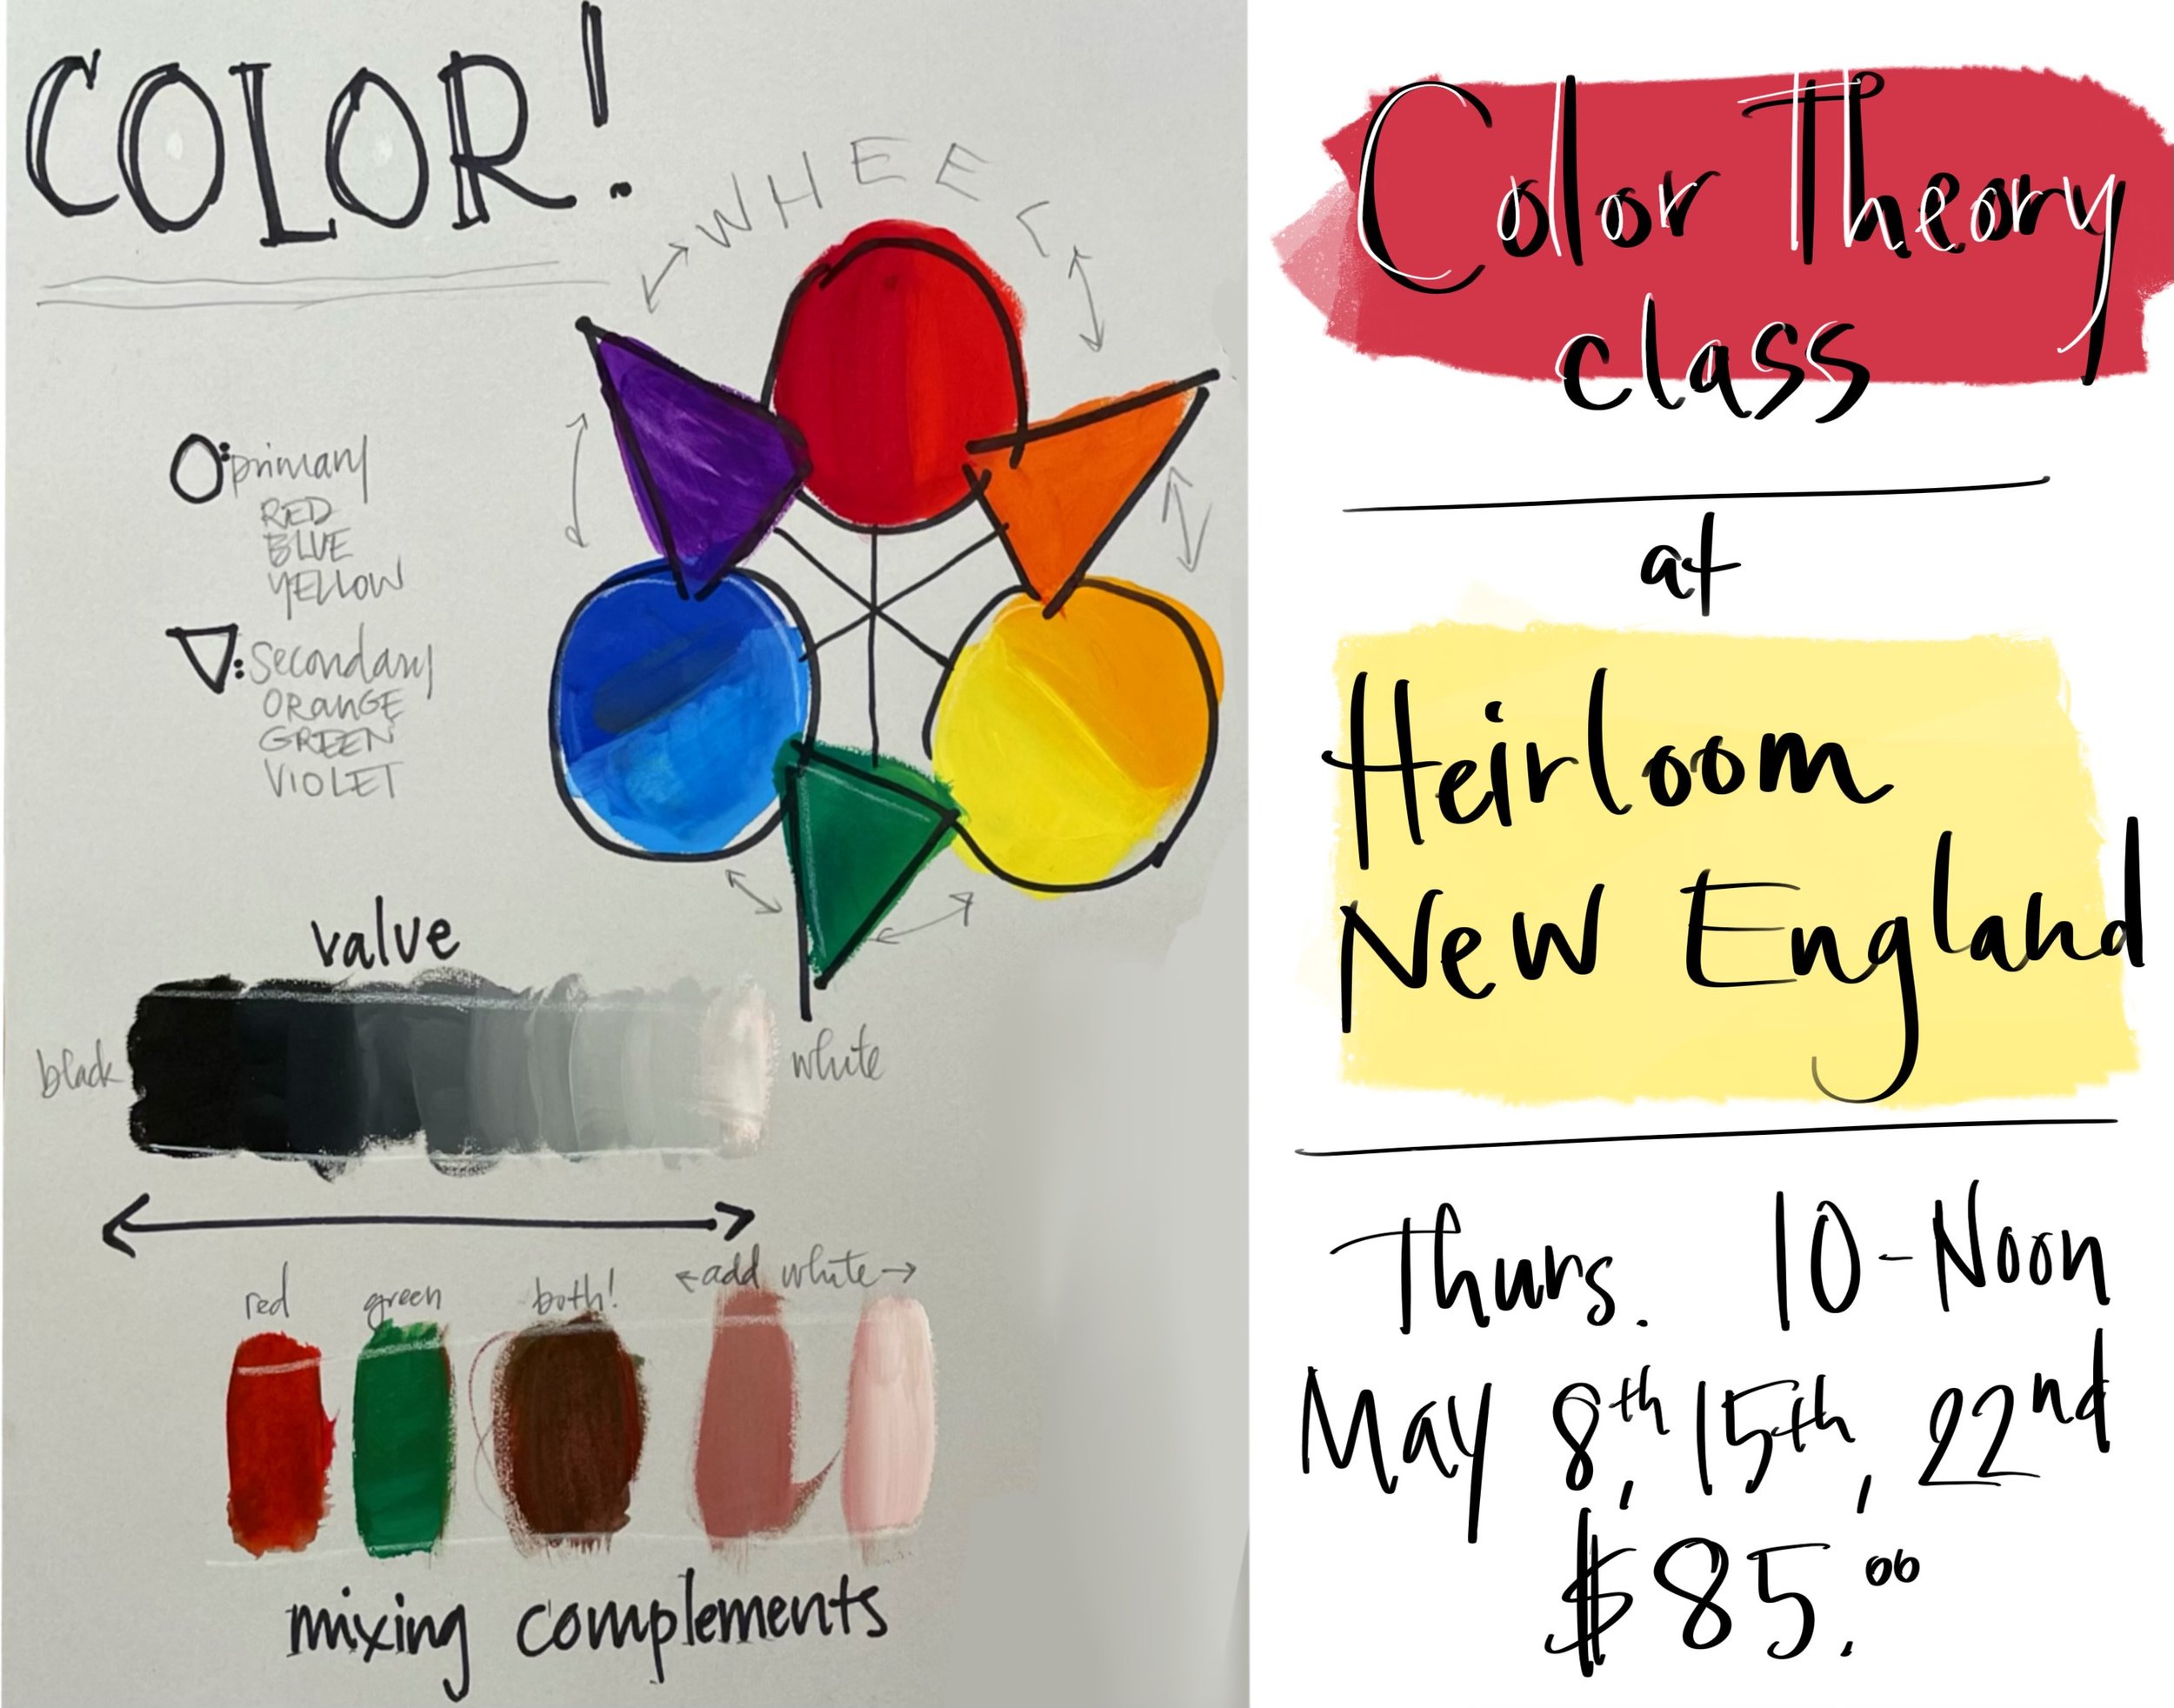 COLOR!
WHEEL
primary
RED
BLUE
YELLOW
secondary
ORANGE
GREEN
VIOLET
value
black
white
red
green
both!
add white
mixing complements
Color Theory
class
at
Heirloom
New England
Thurs. 10-Noon
May 8th, 15th, 22nd
$85.00